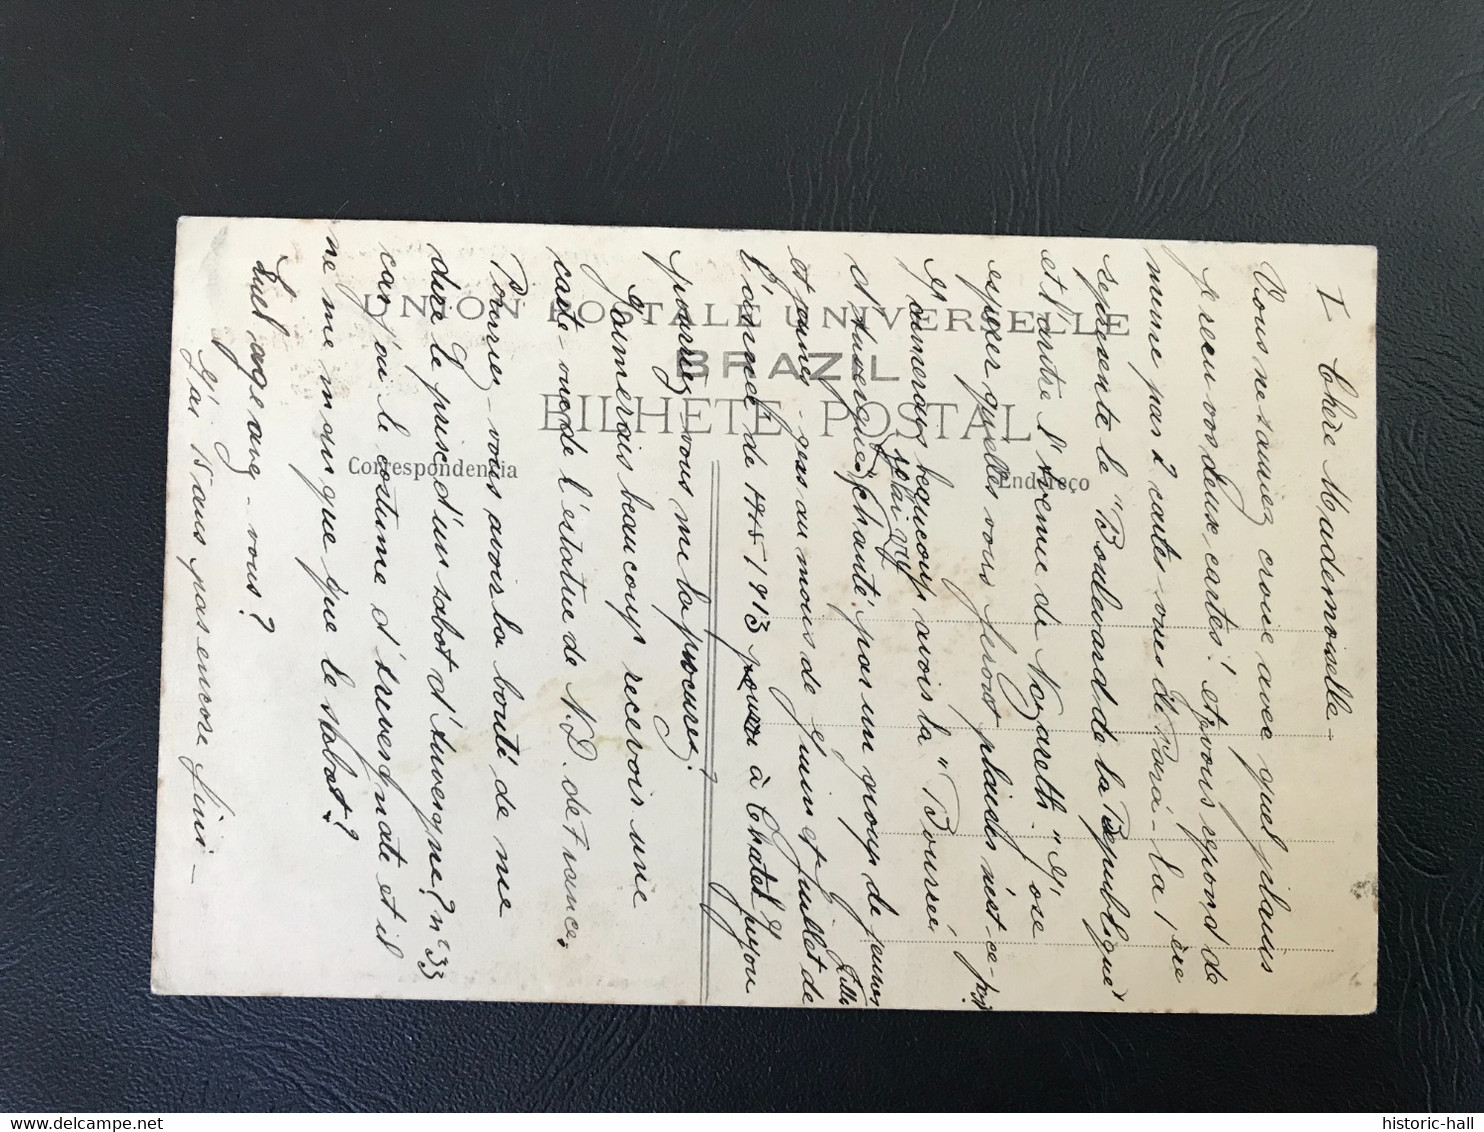 UNION POSTALE UNIVERSELLE
BRAZIL
BILHETE POSTAL
Correspondencia
Endereço
I. Chère Mademoiselle -
Vous ne saurez croire avec quel plaisir
je reçu vos deux cartes! et vous repond de
même pas 2 cartes-vues de Pará - la 1ère
représente le "Boulevard de la Republique"
et l'autre l'Avenue de Nazareth. J'ose
espérer qu'elles vous feront plaisir n'est-ce-pas?
J'aimerais beaucoup avoir la "Bourrée
d'Auvergne" chanté par un group de jeunes filles
et jeunes-gens au mois de Juin et Juillet de
l'année de 1913 à Chatel Guyon
pourriez vous me la procurer?
J'aimerais beaucoup recevoir une
carte-vue de l'estatue de N.D. de France.
Pourriez-vous avoir la bonté de me
dire le prix d'un sabot d'Auvergne? nº 33
car j'ai le costume d'Auvergnate et il
ne me manque que le sabot?
Quel age avez-vous?
J'ai 15 ans pas encore finis -
historic-hall